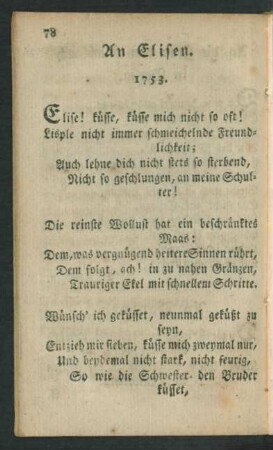 78
An Elisen.
1753.
Elise! küsse, küsse mich nicht so oft!
Lisple nicht immer schmeichelnde Freund-
lichkeit;
Auch lehne dich nicht stets so sterbend,
Nicht so geschlungen, an meine Schul-
ter!
Die reinste Wollust hat ein beschränktes
Maas:
Dem, was vergnügend heitere Sinnen rührt,
Dem folgt, ach! in zu nahen Gränzen,
Trauriger Ekel mit schnellem Schritte.
Wünsch' ich geküsset, neunmal geküßt zu
seyn,
Entzieh mir sieben, küsse mich zweymal nur,
Und beydemal nicht stark, nicht feurig,
So wie die Schwester den Bruder
küsset,